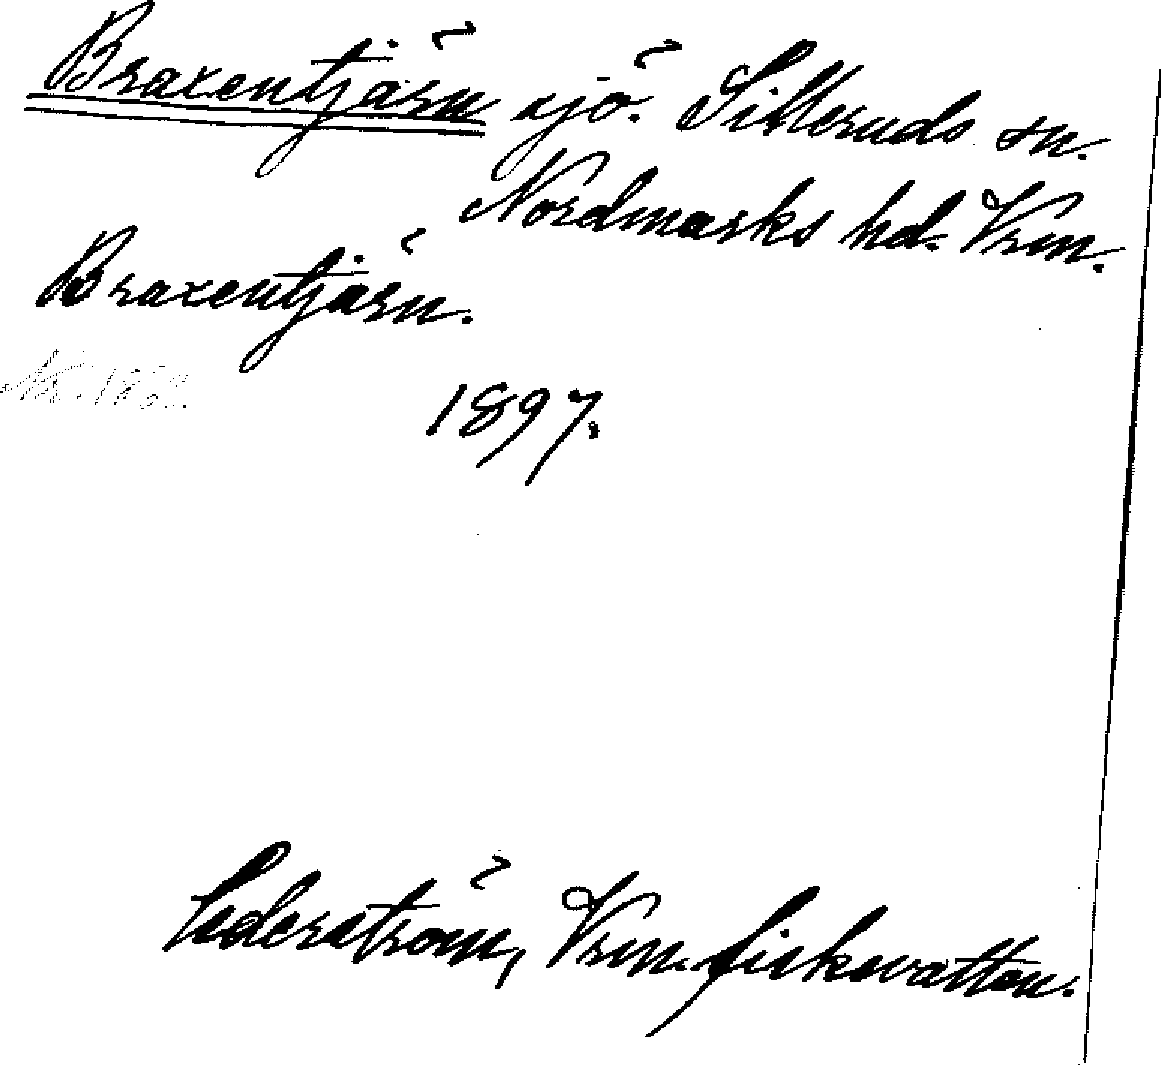 Braxentjärn sjö. Silleruds sn.
Nordmarks hd. Vrm.
Braxentjärn.
1897.
Cederström, Vrm. fiskevatten.